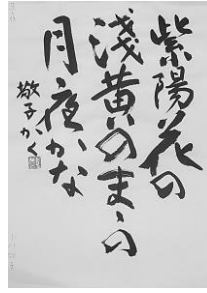 紫陽花の
浅黄のまゝの
月夜かな
敬子かく